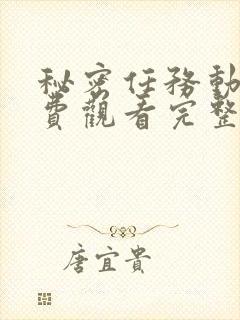 秘密任務動
費觀看完整
唐宜貴